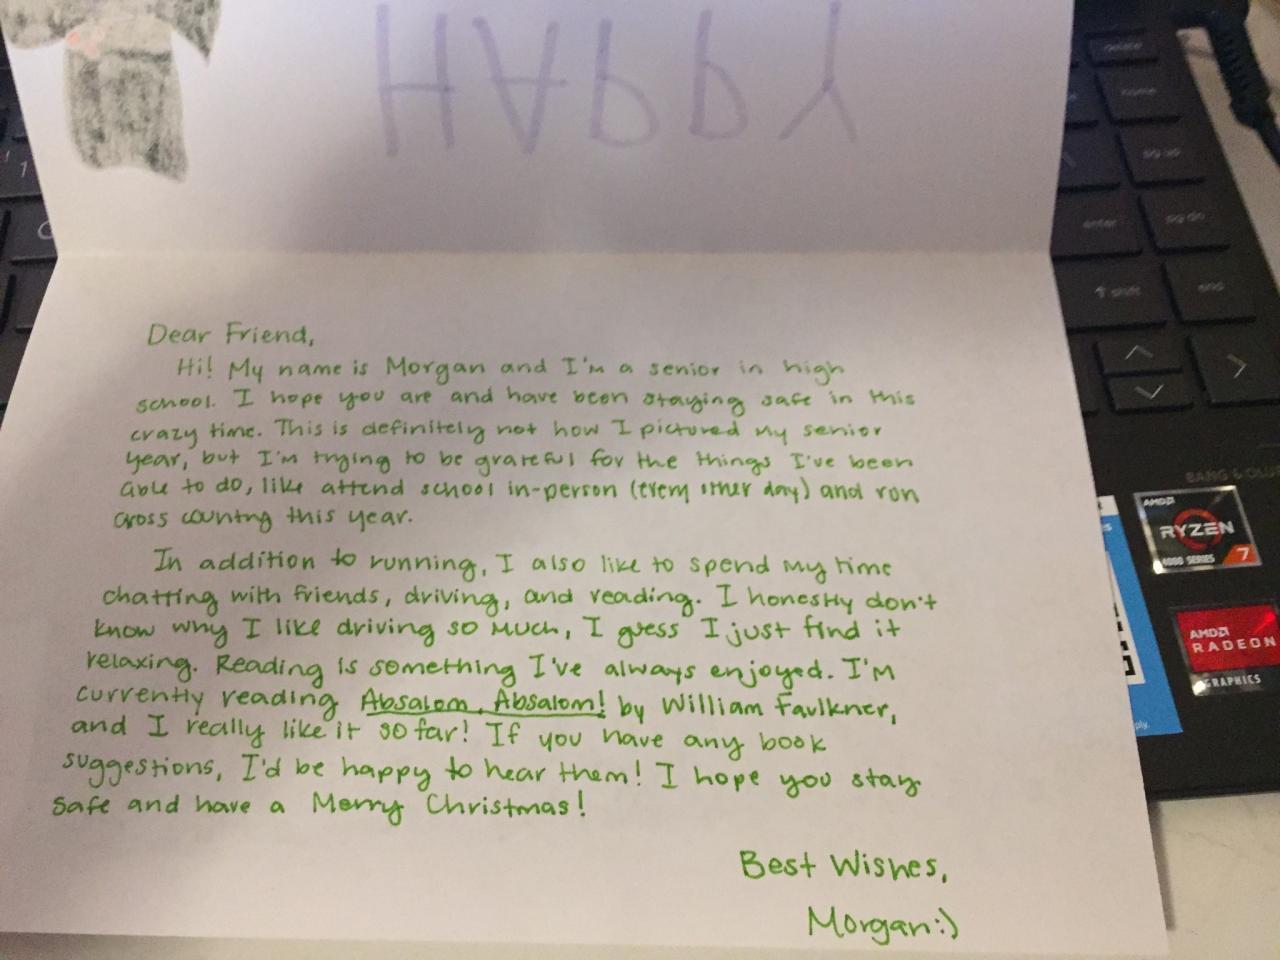 HAPPY
Dear Friend,
Hi! My name is Morgan and I'm a senior in high
school. I hope you are and have been staying safe in this
crazy time. This is definitely not how I pictured my senior
year, but I'm trying to be grateful for the things I've been
able to do, like attend school in-person (every other day) and run
cross country this year.
In addition to running, I also like to spend my time
chatting with friends, driving, and reading. I honestly don't
know why I like driving so much, I guess I just find it
relaxing. Reading is something I've always enjoyed. I'm
currently reading Absalom, Absalom! by William Faulkner,
and I really like it so far! If you have any book
suggestions, I'd be happy to hear them! I hope you stay
safe and have a Merry Christmas!
Best Wishes,
Morgan:)
delete
home
pg up
enter
pg dn
↑ shift
end
BANG & OLUF
AMD
RYZEN
4000 SERIES 7
AMD
RADEON
GRAPHICS